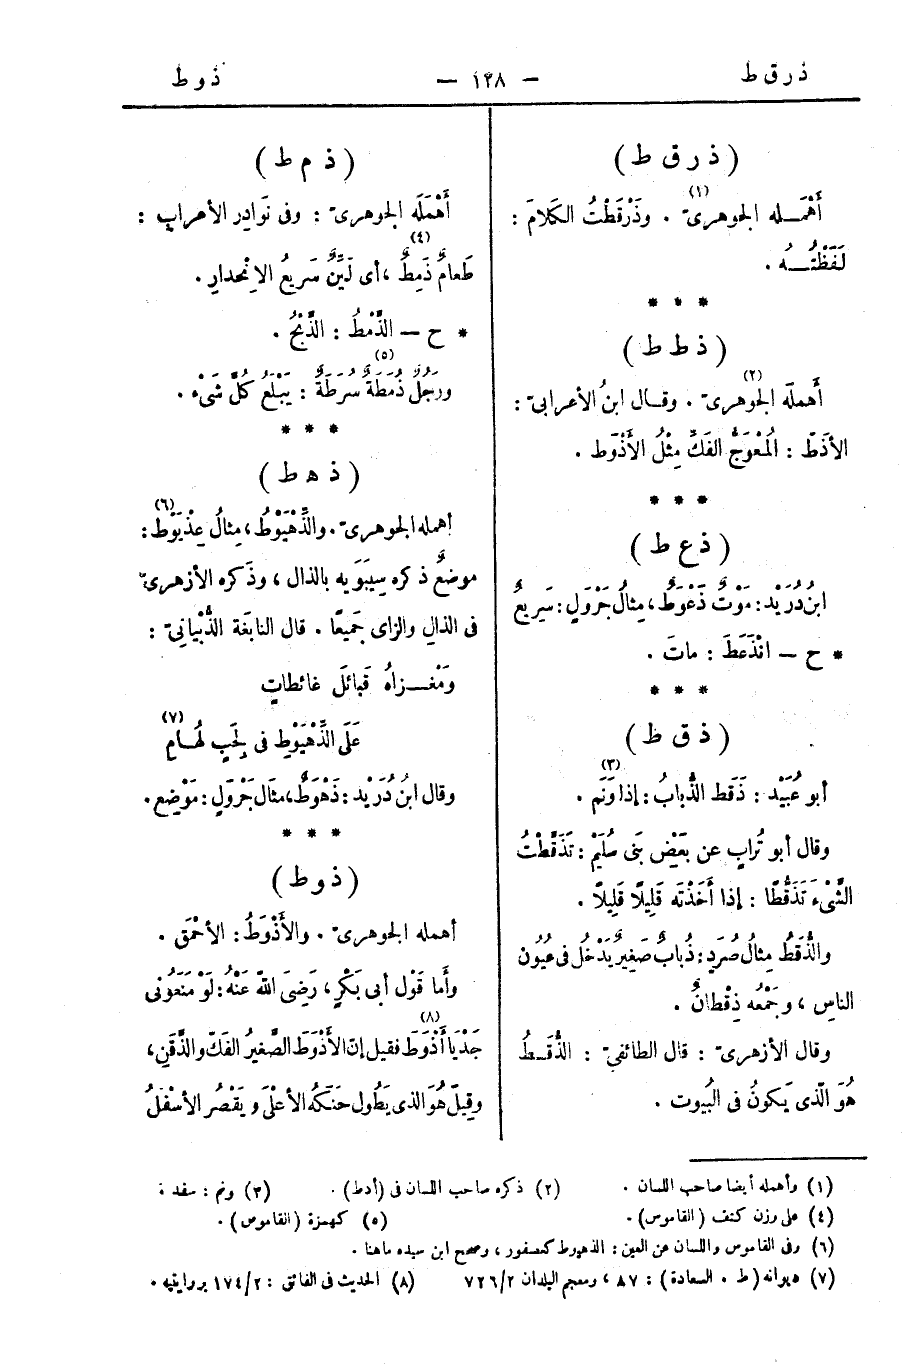 ذرقط — ١٢٨ — ذوط
( ذ ر ق ط )
أَهْمَـله الجوهرىّ (١) . وذَرْقَطْتُ الكلامَ :
لَفَظْتُـهُ .
* * *
( ذ ط ط )
أَهمله الجوهرىّ (٢) . وقـال ابنُ الأعرابىّ :
الأذَطّ : المُعْوَجُّ الفَكِّ مِثْلُ الأَذْوَط .
* * *
( ذ ع ط )
ابنُ دُرَيْد : مَوْتٌ ذَعْوَطٌ ، مِثالُ جَرْوَلٍ : سَرِيعٌ
* ح — انْذَعَطَ : ماتَ .
* * *
( ذ ق ط )
أبو عُبَيْد : ذَقَطَ الذُّبابُ : إذا وَنَم (٣) .
وقال أبو تُرابٍ عن بَعْضِ بَنِى سُلَيْم : تَذَقَّطْتُ
الشَّىْءَ تَذَقُّطًا : إذا أَخَذْتَه قَلِيلًا قَلِيلًا .
والذُّقَطُ مِثالُ صُرَدٍ : ذُبابٌ صَغِيرٌ يَدْخُلُ فى عُيُونِ
الناسِ ، وجَمْعُه ذِقْطانٌ .
وقال الأزهرىّ : قال الطائفىّ : الذُّقَـطُ
هُوَ الّذى يَكونُ فى البُيوت .
( ذ م ط )
أَهْمَلَه الجوهرىّ : وفى نَوادِر الأعرابِ :
طَعامٌ ذَمِطٌ (٤) ، أى لَيِّنٌ سَرِيعُ الانْحِدارِ .
* ح — الذَّمْطُ : الذَّبْحُ .
ورَجُلٌ ذُمَطَةٌ (٥) سُرَطَةٌ : يَبْلَعُ كُلَّ شَىْء .
* * *
( ذ ه ط )
أهمله الجوهرىّ . والذِّهْيَوْطُ ، مِثالُ عِذْيَوْط (٦) :
موضعٌ ذكره سِيبَوَيه بالذال ، وذَكره الأزهرىّ
فى الذالِ والزاى جَمِيعًا . قال النابغَة الذُّبْيانىّ :
ومَغْـزاهُ قَبائلَ غائظاتٍ
عَلَى الذِّهْيَوْطِ فى لَجِبٍ لُهـامِ (٧)
وقال ابنُ دُرَيْد : ذَهْوَطٌ ، مثال جَرْوَلٍ : مَوْضِع .
* * *
( ذ و ط )
أهمله الجوهرىّ . والأَذْوَطُ : الأحْمَق .
وأَما قَوْل أبى بَكْرٍ ، رَضِىَ اللهُ عَنْهُ : لَوْ مَنَعُونى
جَدْيًا أَذْوَط (٨) فقيل إنّ الأَذْوَطَ الصَّغِيرُ الفَكّ والذَّقَنِ ،
وقِيلَ هُوَ الذى يَطُول حَنَكُه الأعْلَى ويَقْصُر الأسْفَلُ
(١) وأهمله أيضا صاحب اللسان . (٢) ذكره صاحب اللسان فى (أدط) . (٣) ونم : سفد .
(٤) على وزن كتف (القاموس) . (٥) كهمزة (القاموس) .
(٦) وفى القاموس واللسان عن العين : الذهيوط كعصفور ، وصحح ابن سيده ماهنا .
(٧) ديوانه (ط . السعادة) : ٨٧ ، ومعجم البلدان ٧٢٦/٢ (٨) الحديث فى الفائق : ١٧٤/٢ بروايتيه .